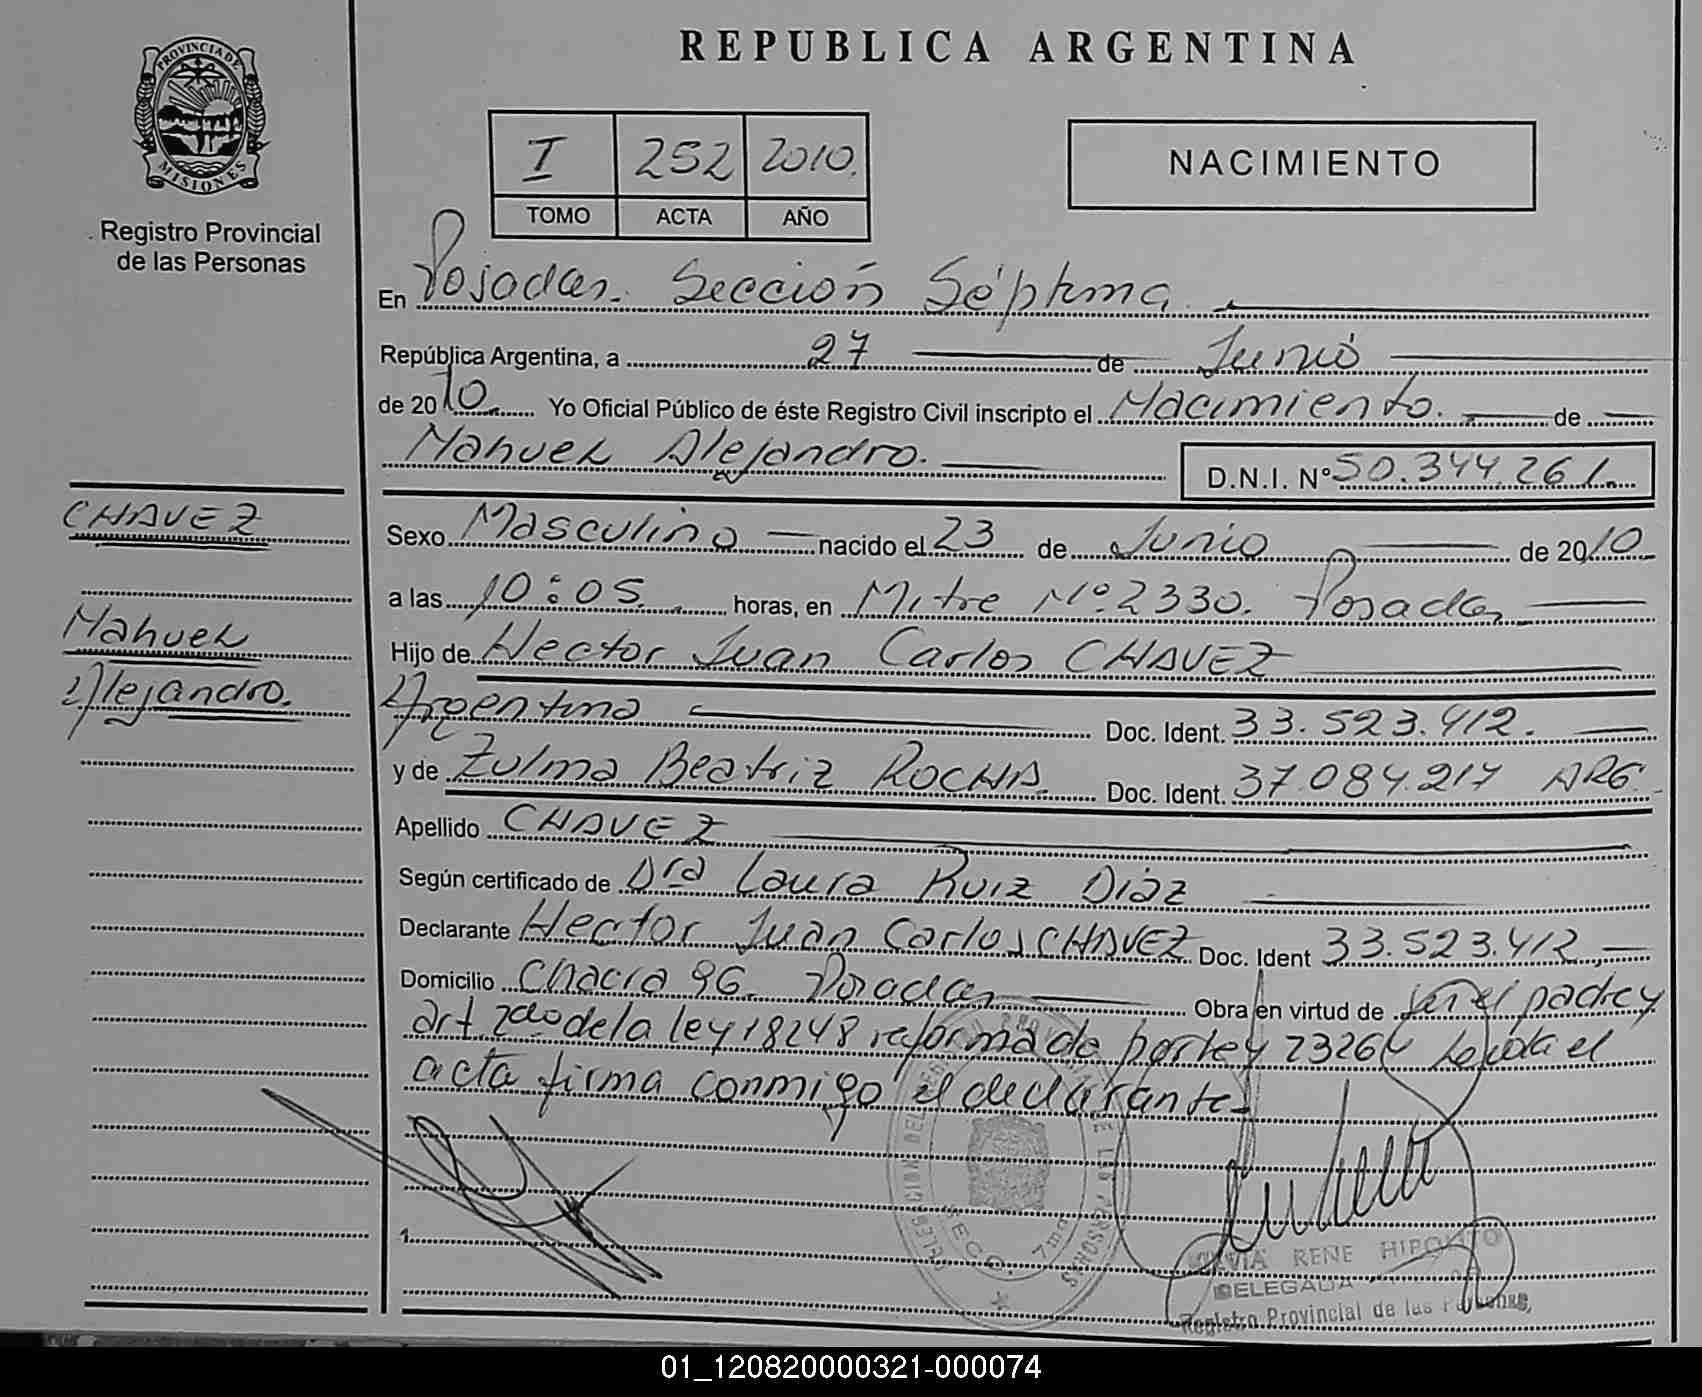 PROVINCIA DE
MISIONES
Registro Provincial
de las Personas
REPUBLICA ARGENTINA
I 252 2010.
TOMO ACTA AÑO
NACIMIENTO
En Posadas. Sección Séptima
República Argentina, a 27 de Junio
de 2010. Yo Oficial Público de éste Registro Civil inscripto el Nacimiento. de
Manuel Alejandro.
D.N.I. Nº 50.344.261.
CHAVEZ
Manuel
Alejandro.
Sexo Masculino nacido el 23 de Junio de 2010
a las 10:05 horas, en Mitre Nº 2330. Posadas
Hijo de Hector Juan Carlos CHAVEZ
Argentina Doc. Ident. 33.523.412.
y de Zulma Beatriz ROCHA. Doc. Ident. 37.084.217 ARG.
Apellido CHAVEZ
Según certificado de Dra Laura Ruiz Diaz
Declarante Hector Juan Carlos CHAVEZ Doc. Ident 33.523.412,
Domicilio Chacra 96. Posadas Obra en virtud de ser el padre y
art 2do de la ley 18248 reformada por ley 23264 Leída el
acta firma conmigo el declarante
SECC. 7ma
RENE HIPOLITO
DELEGADA
Registro Provincial de las Personas,
01_120820000321-000074